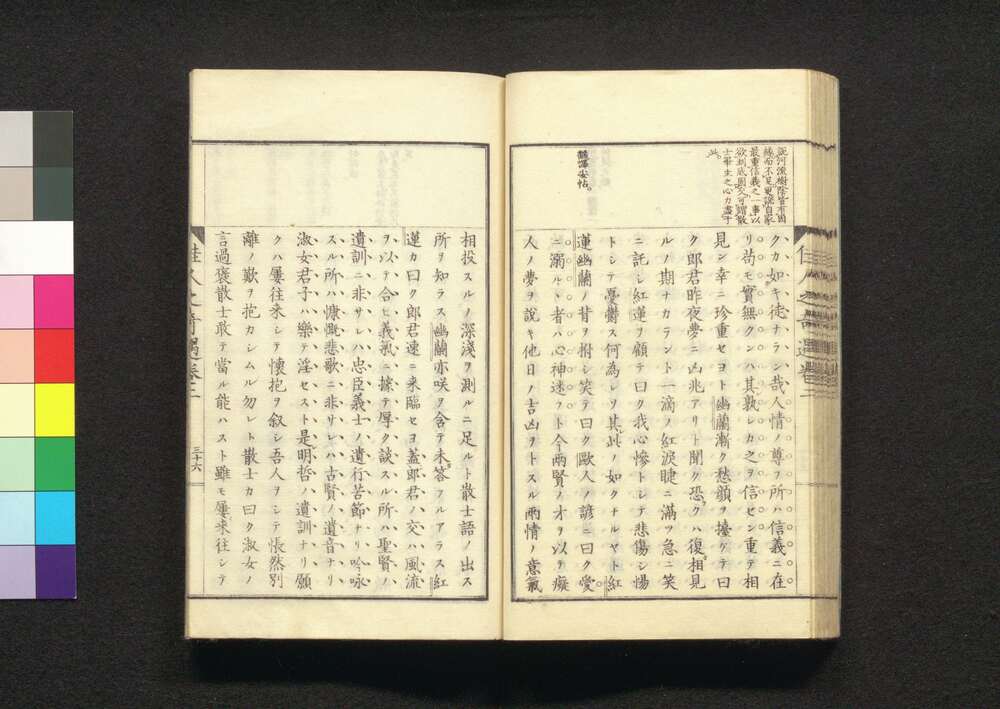 クカ如キ徒ナラン哉人情ノ尊フ所ハ信義ニ在
リ苟モ實無クンハ其孰レカ之ヲ信セン重テ相
見ン幸ニ珍重セヨト幽蘭漸ク愁顔ヲ擡ケテ曰
ク郎君昨夜夢ニ凶兆アリト聞ク恐クハ復相見
ルノ期ナカラント一滴ノ紅淚睫ニ滿ツ急ニ笑
ニ託シ紅蓮ヲ顧テ曰ク我心慘トシテ悲傷シ惕
トシテ憂鬱ス何為レソ其此ノ如クナルヤト紅
蓮幽蘭ノ背ヲ拊シ笑テ曰ク歐人ノ諺ニ曰ク愛
ニ溺ルヽ者ハ心神迷フト令兩賢ノ才ヲ以テ癡
人ノ夢ヲ說キ他日ノ吉凶ヲトスル兩情ノ意氣
飜譯安帖。
相投スルノ深淺ヲ測ルニ足ルト散士語ノ出ス
所ヲ知ラス幽蘭亦咲ヲ含テ未答フルアラス紅
蓮カ曰ク郎君速ニ来臨セヨ蓋郎君ノ交ハ風流
ヲ以テ合ヒ義氣ニ據テ厚ク談スル所ハ聖賢ノ
遺訓ニ非サレハ忠臣義士ノ遺行苦節ナリ吟咏
スル所ハ慷慨悲歌ニ非サレハ古賢ノ遺音ナリ
淑女君子ハ樂テ淫セスト是明哲ノ遺訓ナリ願
クハ屢往来シテ懷抱ヲ叙シ吾人ヲシテ悵然別
離ノ歎ヲ抱カシムル勿レト散士曰ク淑女ノ
言過褒散士敢テ當ル能ハスト雖モ屢来往シテ
佳人之奇遇卷二
三十六